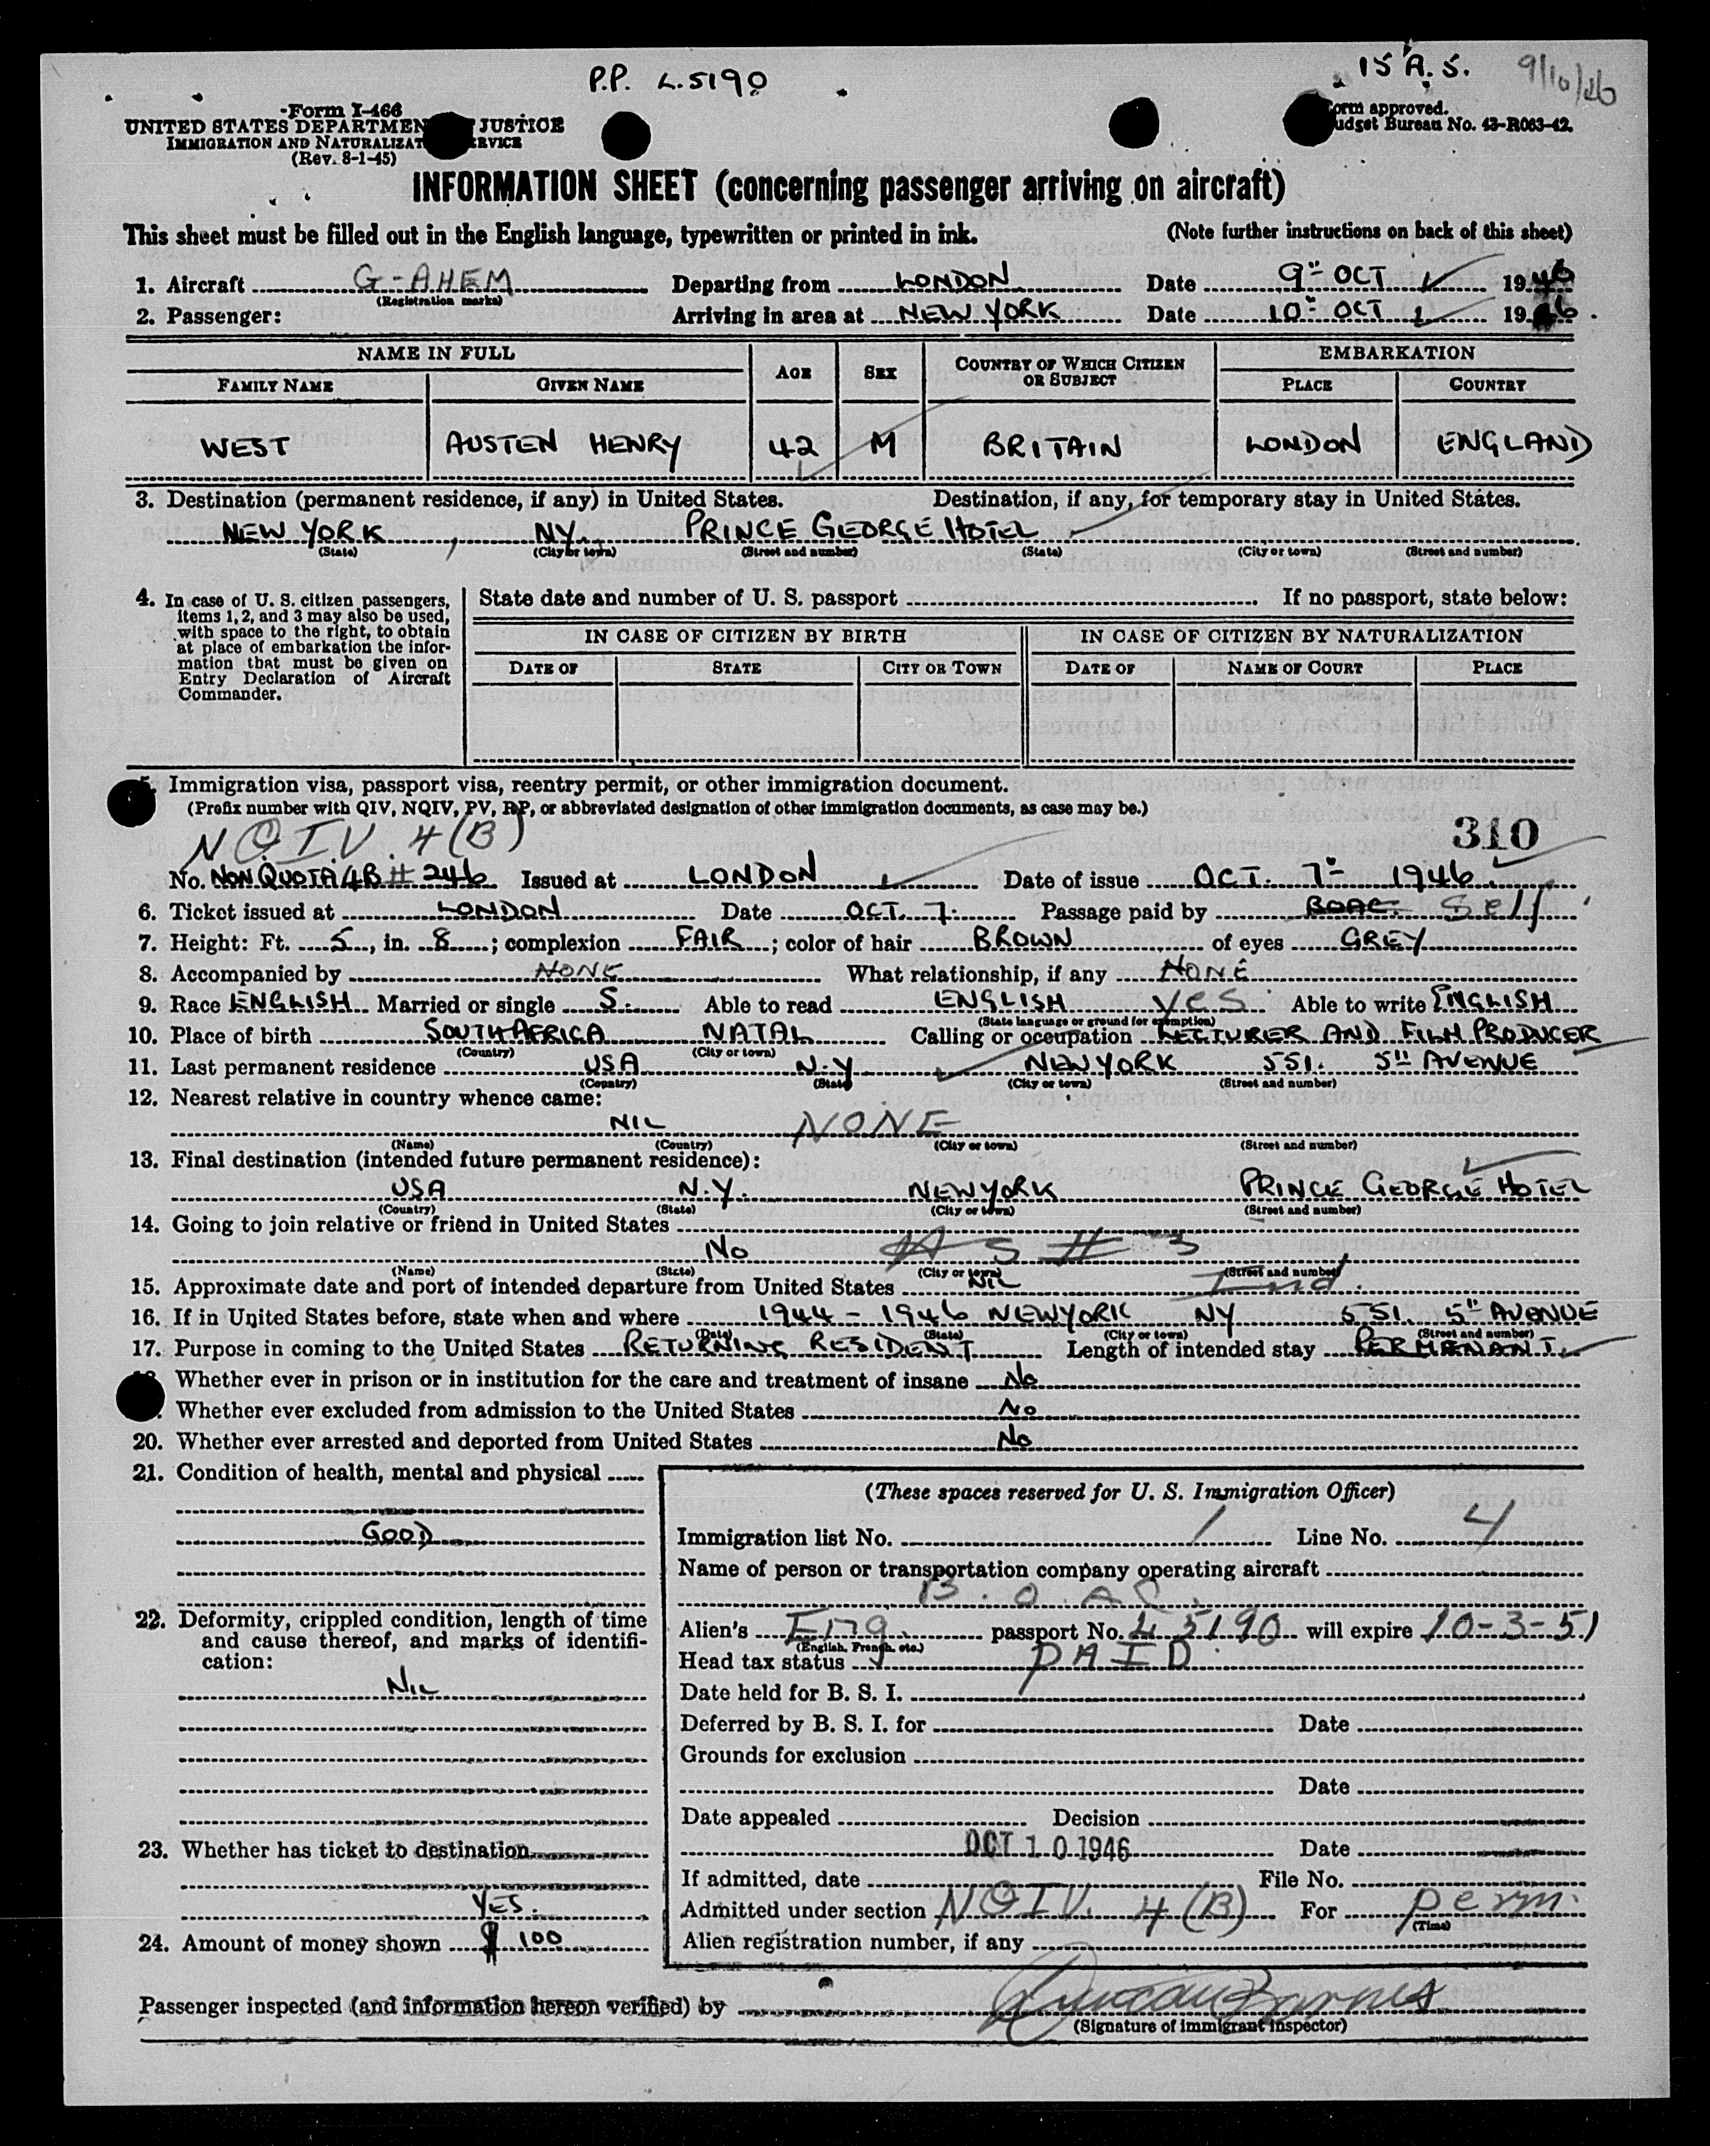 P.P. L.5190
15 A. S. 9/10/46
Form I-466
UNITED STATES DEPARTMENT JUSTICE
IMMIGRATION AND NATURALIZATION SERVICE
(Rev. 8-1-45)
Form approved.
Budget Bureau No. 43-R063-42.
INFORMATION SHEET (concerning passenger arriving on aircraft)
This sheet must be filled out in the English language, typewritten or printed in ink. (Note further instructions on back of this sheet)
1. Aircraft G-AHEM Departing from LONDON Date 9TH OCT 1946
(Registration marks)
2. Passenger: Arriving in area at NEW YORK Date 10TH OCT 1946.
NAME IN FULL AGE SEX COUNTRY OF WHICH CITIZEN OR SUBJECT EMBARKATION
FAMILY NAME GIVEN NAME PLACE COUNTRY
WEST AUSTEN HENRY 42 M BRITAIN LONDON ENGLAND
3. Destination (permanent residence, if any) in United States. Destination, if any, for temporary stay in United States.
NEW YORK, NY. PRINCE GEORGE HOTEL
(State) (City or town) (Street and number) (State) (City or town) (Street and number)
4. In case of U. S. citizen passengers,
items 1, 2, and 3 may also be used,
with space to the right, to obtain
at place of embarkation the infor-
mation that must be given on
Entry Declaration of Aircraft
Commander.
State date and number of U. S. passport If no passport, state below:
IN CASE OF CITIZEN BY BIRTH IN CASE OF CITIZEN BY NATURALIZATION
DATE OF STATE CITY OR TOWN DATE OF NAME OF COURT PLACE
5. Immigration visa, passport visa, reentry permit, or other immigration document.
(Prefix number with QIV, NQIV, PV, RP, or abbreviated designation of other immigration documents, as case may be.)
NQIV. 4(B) 310
No. NON QUOTA 4B # 246 Issued at LONDON Date of issue OCT. 7TH 1946.
6. Ticket issued at LONDON Date OCT. 7. Passage paid by BOAC. Self
7. Height: Ft. 5, in. 8; complexion FAIR; color of hair BROWN of eyes GREY
8. Accompanied by NONE What relationship, if any NONE
9. Race ENGLISH Married or single S. Able to read ENGLISH yes Able to write ENGLISH
(State language or ground for exemption)
10. Place of birth SOUTH AFRICA NATAL Calling or occupation LECTURER AND FILM PRODUCER
(Country) (City or town)
11. Last permanent residence USA N.Y NEW YORK 551. 5TH AVENUE
(Country) (State) (City or town) (Street and number)
12. Nearest relative in country whence came:
NIL NONE
(Name) (Country) (City or town) (Street and number)
13. Final destination (intended future permanent residence):
USA N.Y. NEW YORK PRINCE GEORGE HOTEL
(Country) (State) (City or town) (Street and number)
14. Going to join relative or friend in United States
No AS # 3
(Name) (State) (City or town) (Street and number)
15. Approximate date and port of intended departure from United States NIL Ind.
16. If in United States before, state when and where 1944 - 1946 NEW YORK NY 551. 5TH AVENUE
(Date) (State) (City or town) (Street and number)
17. Purpose in coming to the United States RETURNING RESIDENT Length of intended stay PERMENANT.
Whether ever in prison or in institution for the care and treatment of insane No
Whether ever excluded from admission to the United States No
20. Whether ever arrested and deported from United States No
21. Condition of health, mental and physical
GOOD
22. Deformity, crippled condition, length of time
and cause thereof, and marks of identifi-
cation:
NIL
23. Whether has ticket to destination
YES.
24. Amount of money shown $ 100
(These spaces reserved for U. S. Immigration Officer)
Immigration list No. 1 Line No. 4
Name of person or transportation company operating aircraft
B.O.A.C.
Alien's Eng. passport No. L 5190 will expire 10-3-51
(English, French, etc.)
Head tax status PAID
Date held for B. S. I.
Deferred by B. S. I. for Date
Grounds for exclusion
Date
Date appealed Decision
OCT 10 1946 Date
If admitted, date File No.
Admitted under section NQIV. 4(B) For perm.
(Time)
Alien registration number, if any
Passenger inspected (and information hereon verified) by
(Signature of immigrant inspector)